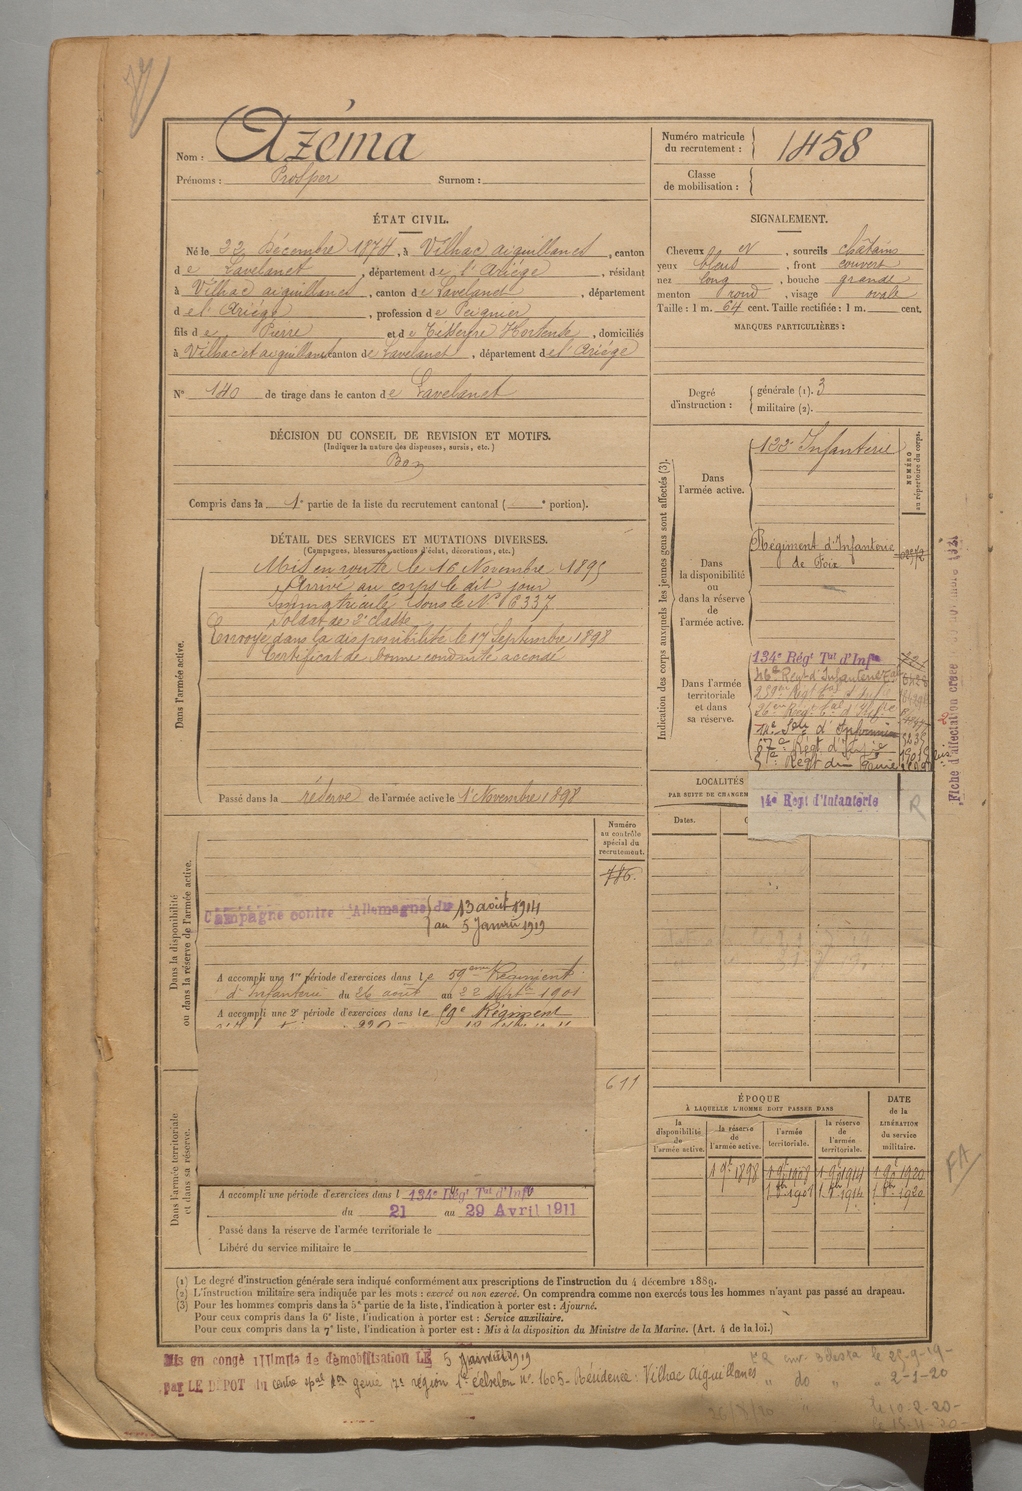 Nom : Azéma
Prénoms : Prosper Surnom :
Numéro matricule du recrutement : 1458
Classe de mobilisation :
ÉTAT CIVIL.
Né le 22 Décembre 1874, à Vilhac aiguillanes, canton
de Lavelanet, département de l'Ariège, résidant
à Vilhac aiguillanes, canton de Lavelanet, département
de l'Ariège, profession de Peignier
fils de Pierre et de Tisseyre Hortense, domiciliés
à Vilhac et aiguillanes canton de Lavelanet, département de l'Ariège
N° 140 de tirage dans le canton de Lavelanet
SIGNALEMENT.
Cheveux et , sourcils châtains
yeux bleus , front couvert
nez long , bouche grande
menton rond , visage ovale
Taille : 1 m. 64 cent. Taille rectifiée : 1 m. cent.
MARQUES PARTICULIÈRES :
Degré d'instruction : générale (1). 3
militaire (2).
DÉCISION DU CONSEIL DE REVISION ET MOTIFS.
(Indiquer la nature des dispenses, sursis, etc.)
Bon
Compris dans la 1e partie de la liste du recrutement cantonal ( e portion).
DÉTAIL DES SERVICES ET MUTATIONS DIVERSES.
(Campagnes, blessures, actions d'éclat, décorations, etc.)
Dans l'armée active.
Mis en route le 16 Novembre 1895
Arrivé au corps le dit jour
Immatriculé sous le N° 6337
Soldat de 2e classe
Envoyé dans la disponibilité le 17 Septembre 1898
Certificat de bonne conduite accordé
Passé dans la réserve de l'armée active le 1 Novembre 1898
Indication des corps auxquels les jeunes gens sont affectés (3).
NUMÉRO au répertoire du corps.
Dans l'armée active.
122e Infanterie
Dans la disponibilité ou dans la réserve de l'armée active.
Régiment d'Infanterie
de Foix
Dans l'armée territoriale et dans sa réserve.
134e Régt Tal d'Infie
Fiche d'affectation créée novembre 1921
LOCALITÉS
PAR SUITE DE CHANGEM
14e Regt d'Infanterie R
Dates.
Dans la disponibilité ou dans la réserve de l'armée active.
Numéro au contrôle spécial du recrutement.
786.
Campagne contre l'Allemagne du 13 août 1914
au 5 Janvier 1919
A accompli une 1re période d'exercices dans le 59eme Régiment
d'Infanterie du 26 août au 22 Sept 1901
A accompli une 2e période d'exercices dans le 59e Régiment
611
Dans l'armée territoriale et dans sa réserve.
A accompli une période d'exercices dans l 134e Régt Tal d'Infe
du 21 au 29 Avril 1911
Passé dans la réserve de l'armée territoriale le
Libéré du service militaire le
ÉPOQUE
À LAQUELLE L'HOMME DOIT PASSER DANS
DATE de la LIBÉRATION du service militaire.
la disponibilité de l'armée active.
la réserve de l'armée active.
l'armée territoriale.
la réserve de l'armée territoriale.
1 9e 1898 1 9e 1908 1 9e 1914 1 9e 1920
FA
(1) Le degré d'instruction générale sera indiqué conformément aux prescriptions de l'instruction du 4 décembre 1889.
(2) L'instruction militaire sera indiquée par les mots : exercé ou non exercé. On comprendra comme non exercés tous les hommes n'ayant pas passé au drapeau.
(3) Pour les hommes compris dans la 5e partie de la liste, l'indication à porter est : Ajourné.
Pour ceux compris dans la 6e liste, l'indication à porter est : Service auxiliaire.
Pour ceux compris dans la 7e liste, l'indication à porter est : Mis à la disposition du Ministre de la Marine. (Art. 4 de la loi.)
Mis en congé illimité de démobilisation LE 5 Janvier 1919
par LE DEPOT du génie 7e région 1e échelon n° 1605 - Résidence : Vilhac Aiguillanes
le 25-9-19-
" do " " 2-1-20
le 10-2-20-